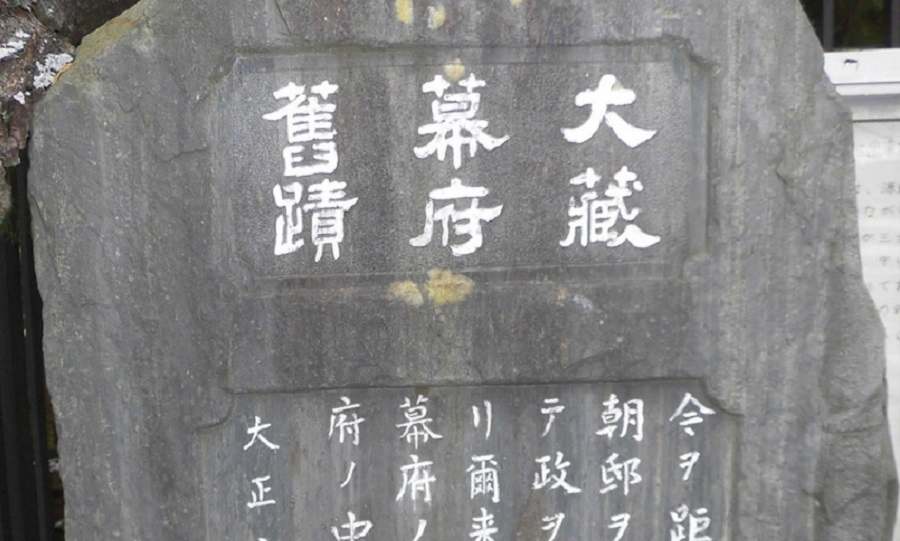 大藏
幕府
舊蹟
今ヲ距
朝邸ヲ
テ政ヲ
リ爾来
幕府ノ
府ノ中
大正